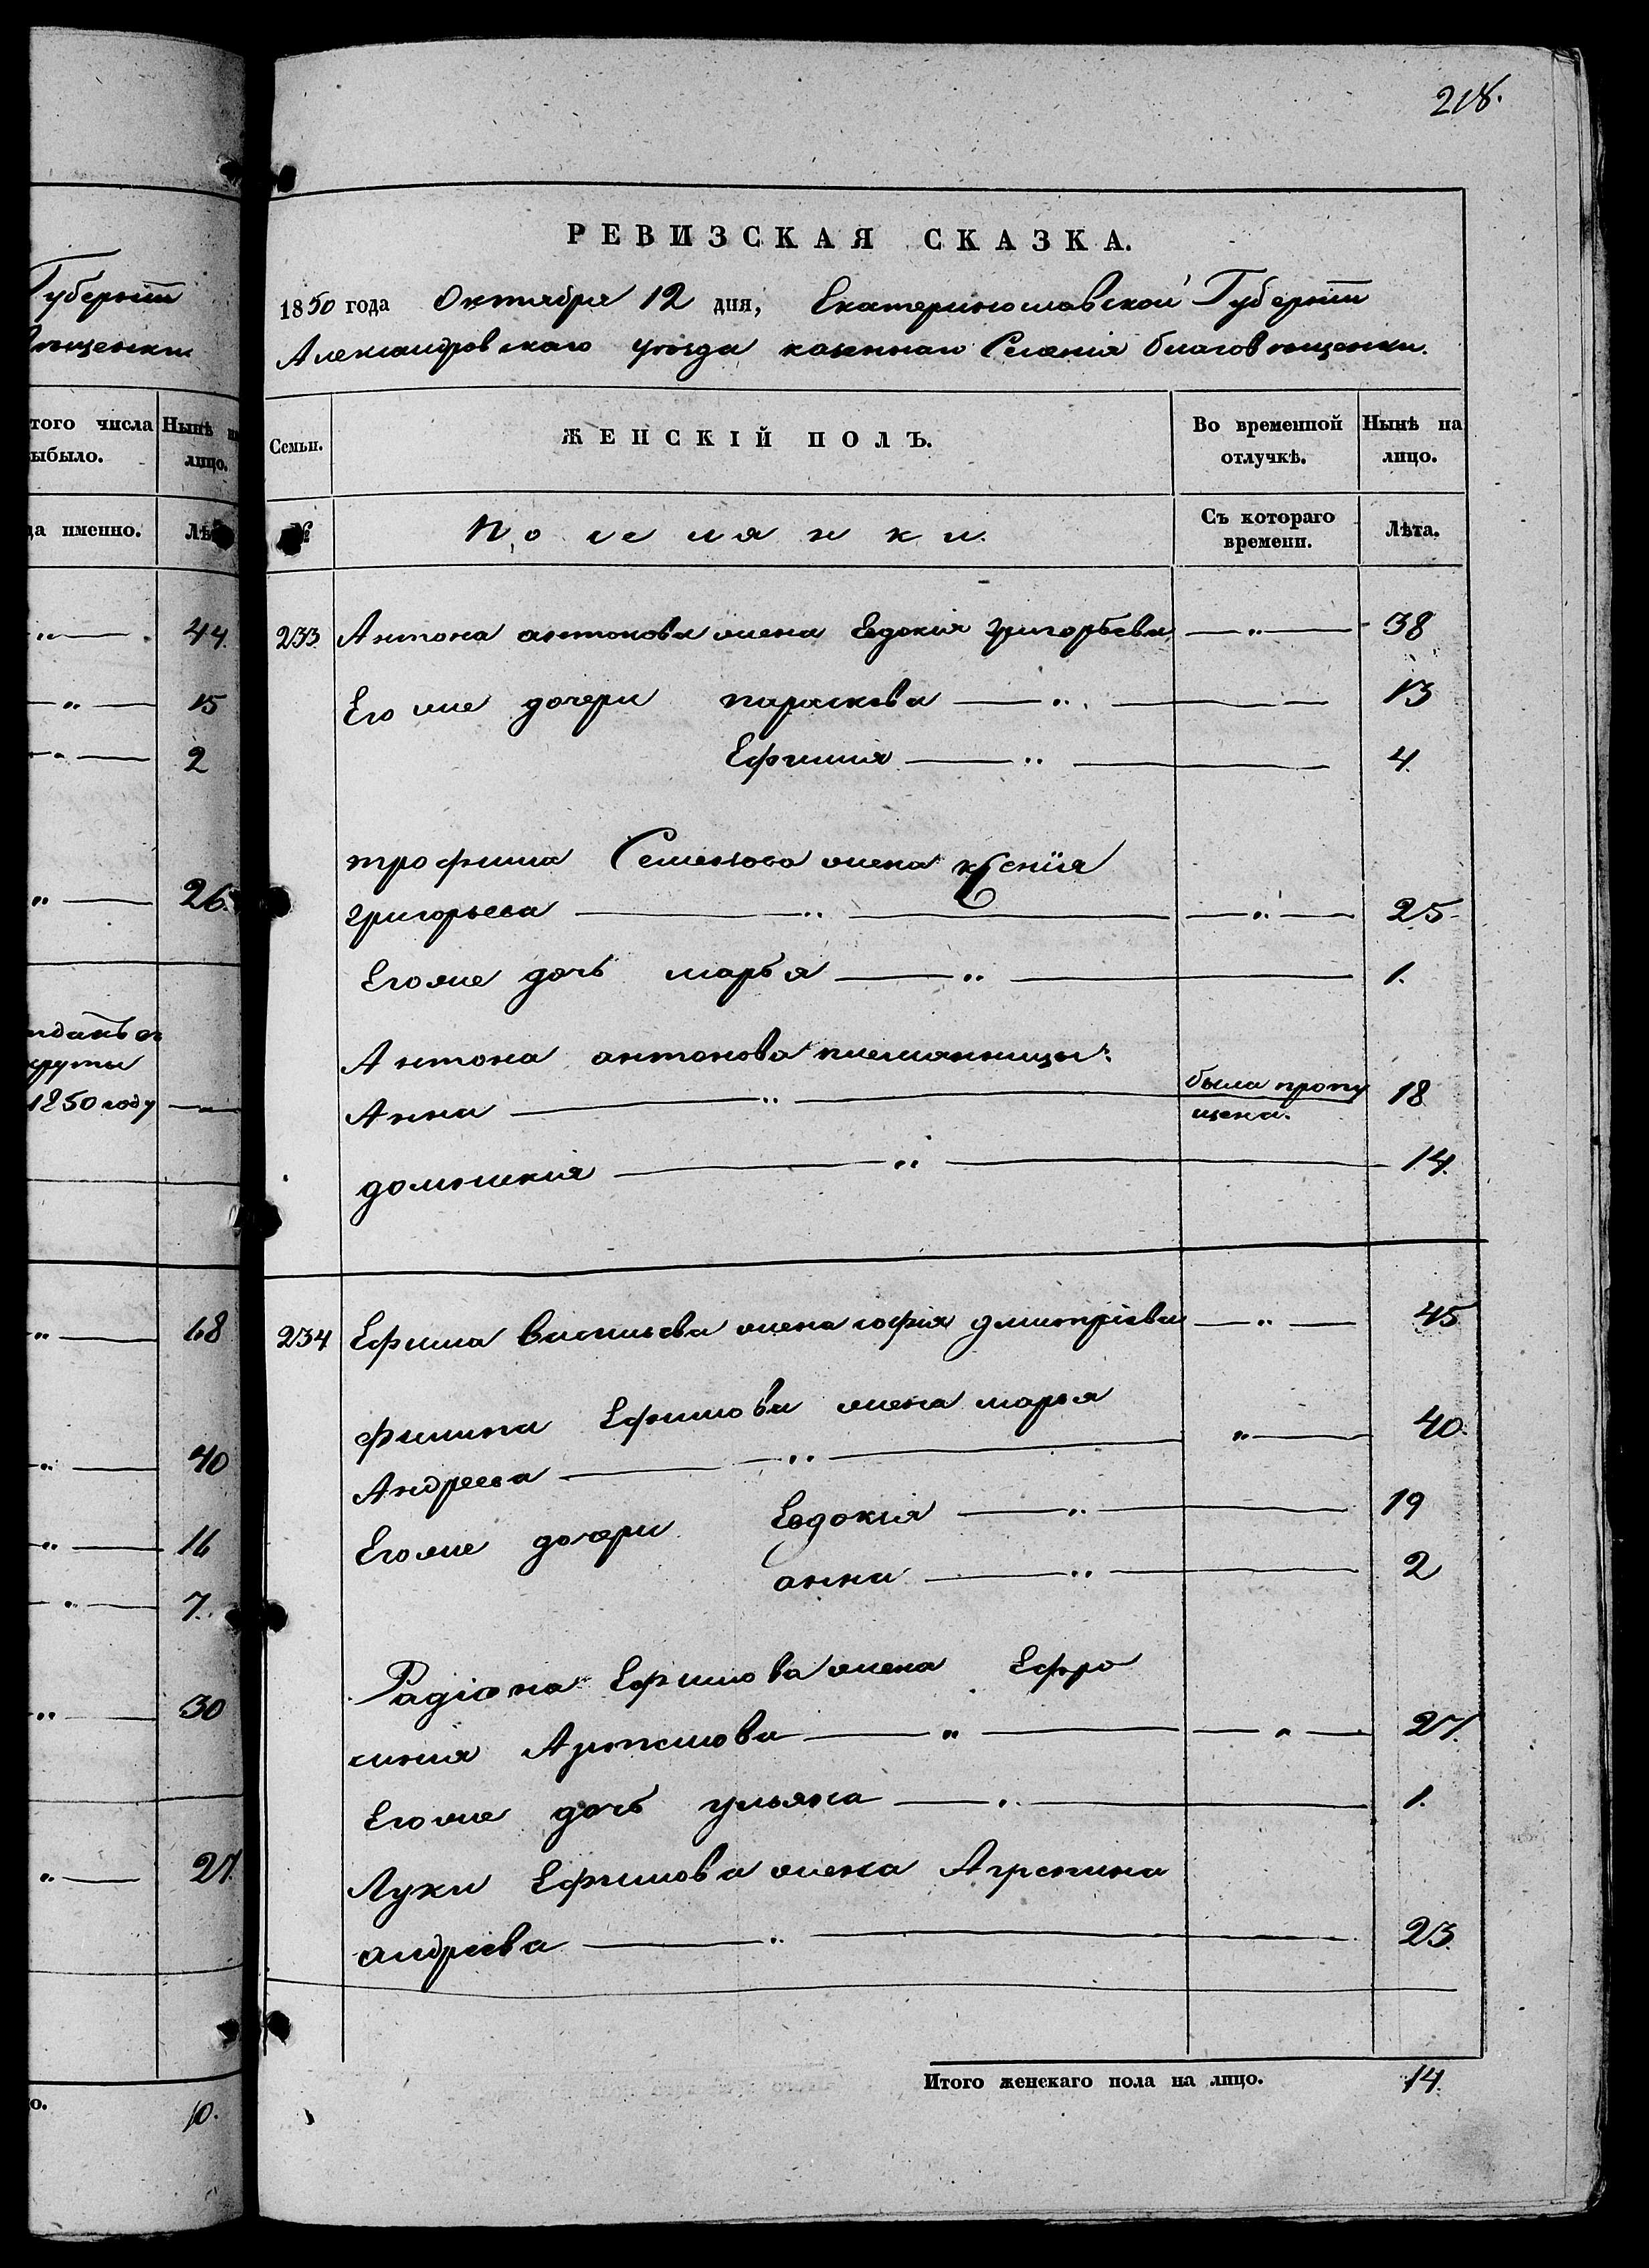 Губерніи
того числа
Нынѣ
ыбыло.
лицо.
да именно.
44.
15
2
26.
1850 году
68
40
16
7.
30
27.
о.
10.
218.
РЕВИЗСКАЯ СКАЗКА.
1850 года Октября 12 дня, Екатеринославской Губерніи
Александровскаго уѣзда казеннаго Селенія благовѣщенки.
Семьи.
ЖЕНСКІЙ ПОЛЪ.
Во временной отлучкѣ.
Нынѣ на лицо.
№
Поселянки.
Съ котораго времени.
Лѣта.
233 Антона антонова жена Евдокія григорьева — " — 38
Его же дочери параскева — " — 13
Ефимія — " — 4.
трофима Семенова жена ксенія
григорьева — " — " — 25
Его же дочь марья — " — 1.
Антона антонова племянницы:
Анна — " — была пропущена. 18
домникия — " — 14.
234 Ефима васильева жена софия дмитріева — " — 45
филипа Ефимова жена марья
Андреева — " — " — 40.
Его же дочери Евдокия — " — 19
анна — " — 2
Радіона Ефимова жена Ефро
синия Артемова — " — " — 27.
Его же дочь ульяна — " — 1.
Луки Ефимова жена Агрепина
андреева — " — 23.
Итого женскаго пола на лицо. 14.